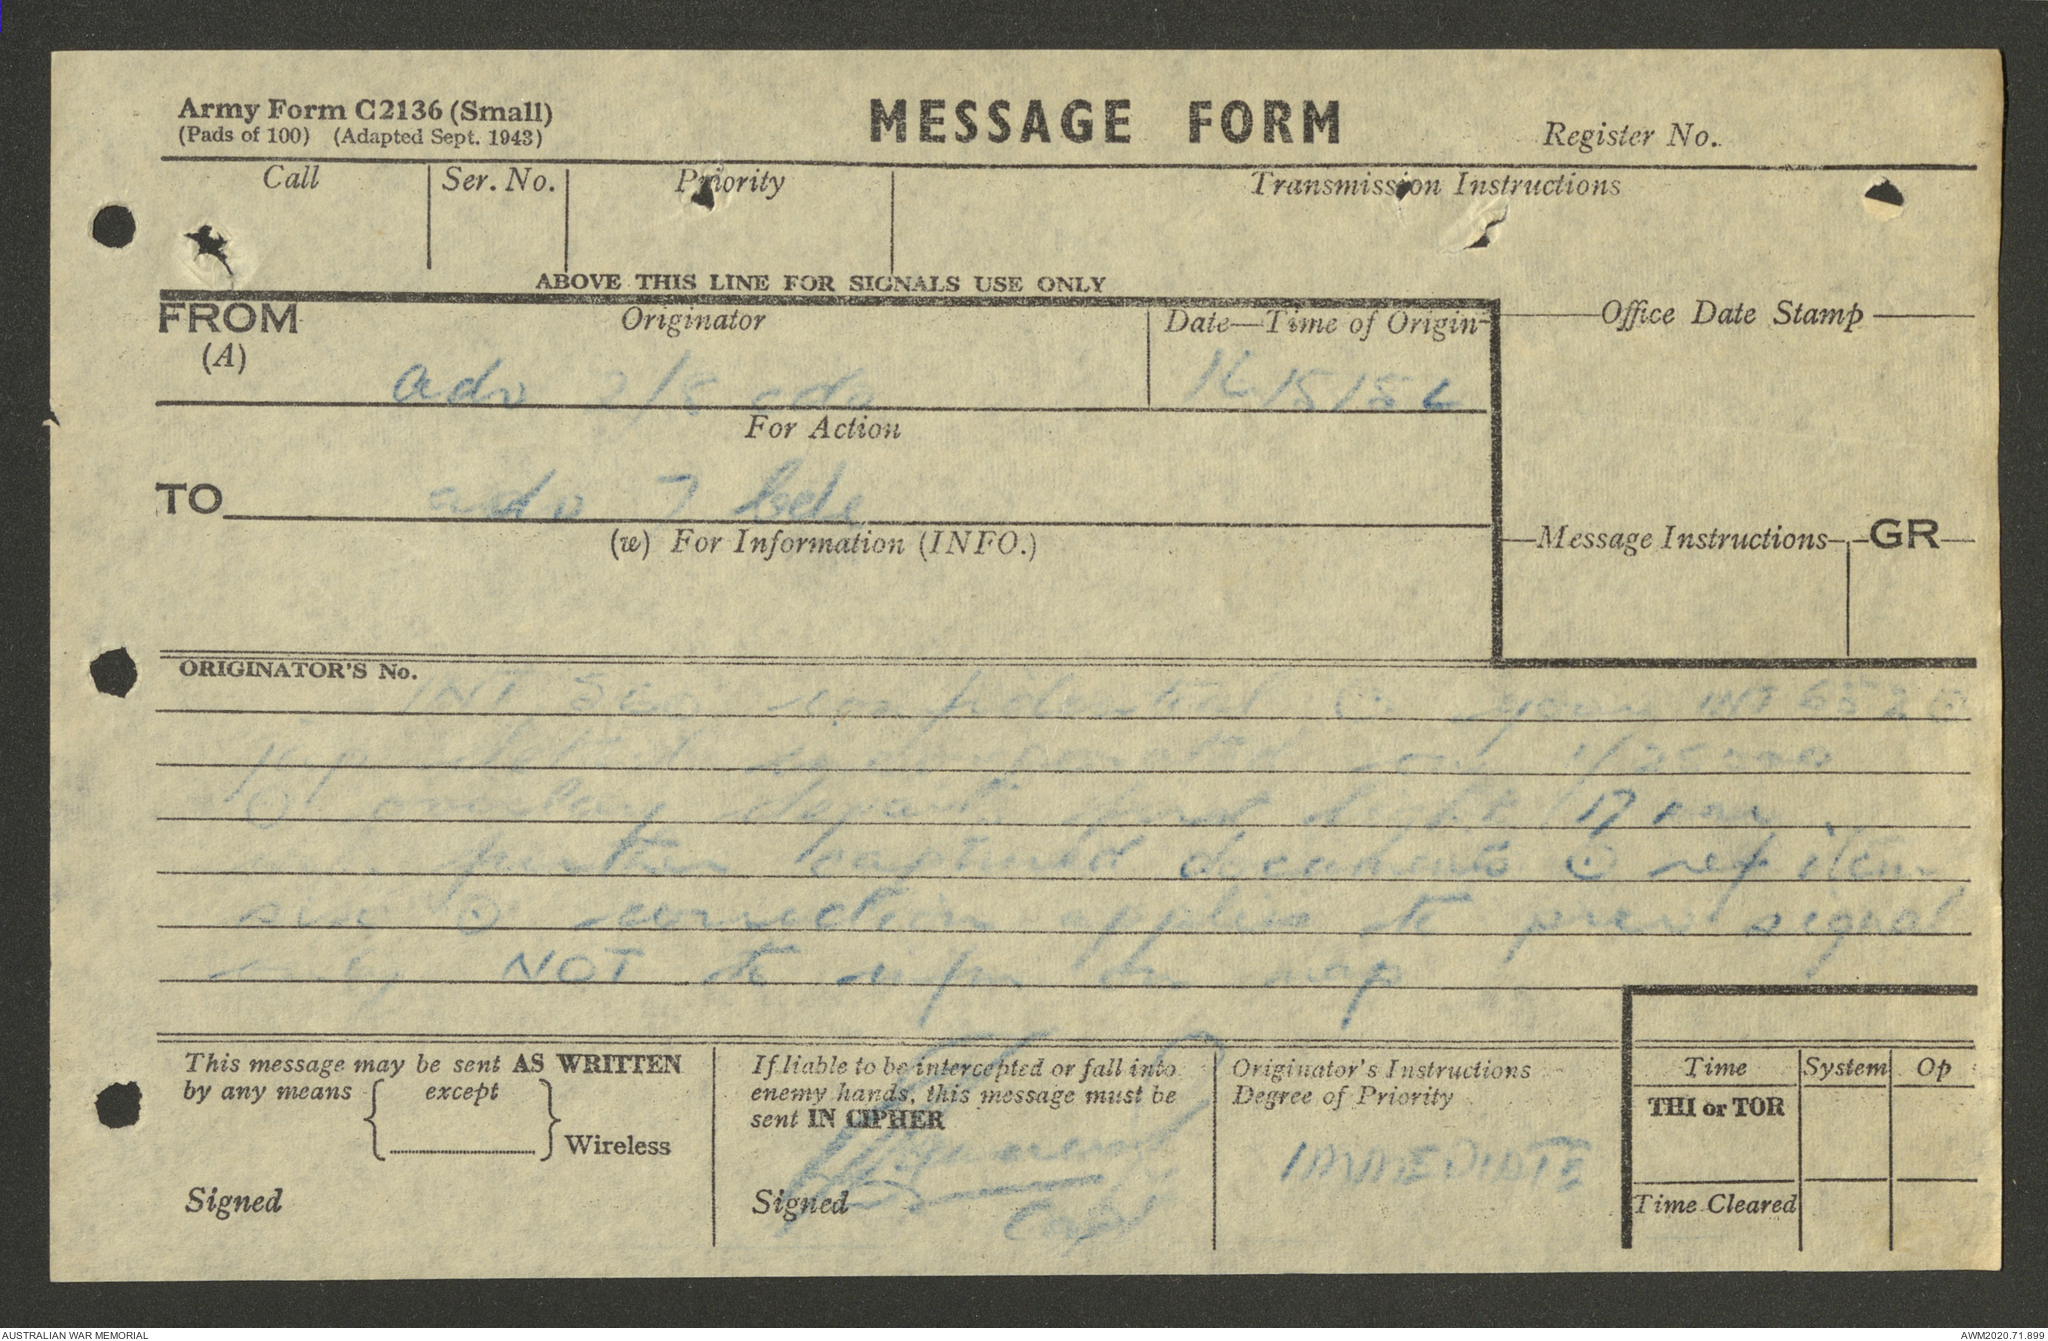 Army Form C2136 (Small)
(Pads of 100) (Adapted Sept. 1943)
MESSAGE FORM
Register No.
Call
Ser. No.
Priority
Transmission Instructions
ABOVE THIS LINE FOR SIGNALS USE ONLY
FROM
(A)
Originator
Date—Time of Origin
Office Date Stamp
adv 2/8 cdo
For Action
TO
adv 7 bde
(w) For Information (INFO.)
Message Instructions
GR
ORIGINATOR'S No.
INT confidential ⊙ your INT 652 ⊙
1/25000
⊙ first light 17
further captured documents ⊙ ref item
⊙ correction applies to prev signal
only NOT to on map
This message may be sent AS WRITTEN
by any means except
Wireless
Signed
If liable to be intercepted or fall into
enemy hands, this message must be
sent IN CIPHER
Signed
Capt
Originator's Instructions
Degree of Priority
IMMEDIATE
Time System Op
THI or TOR
Time Cleared
AUSTRALIAN WAR MEMORIAL
AWM2020.71.899